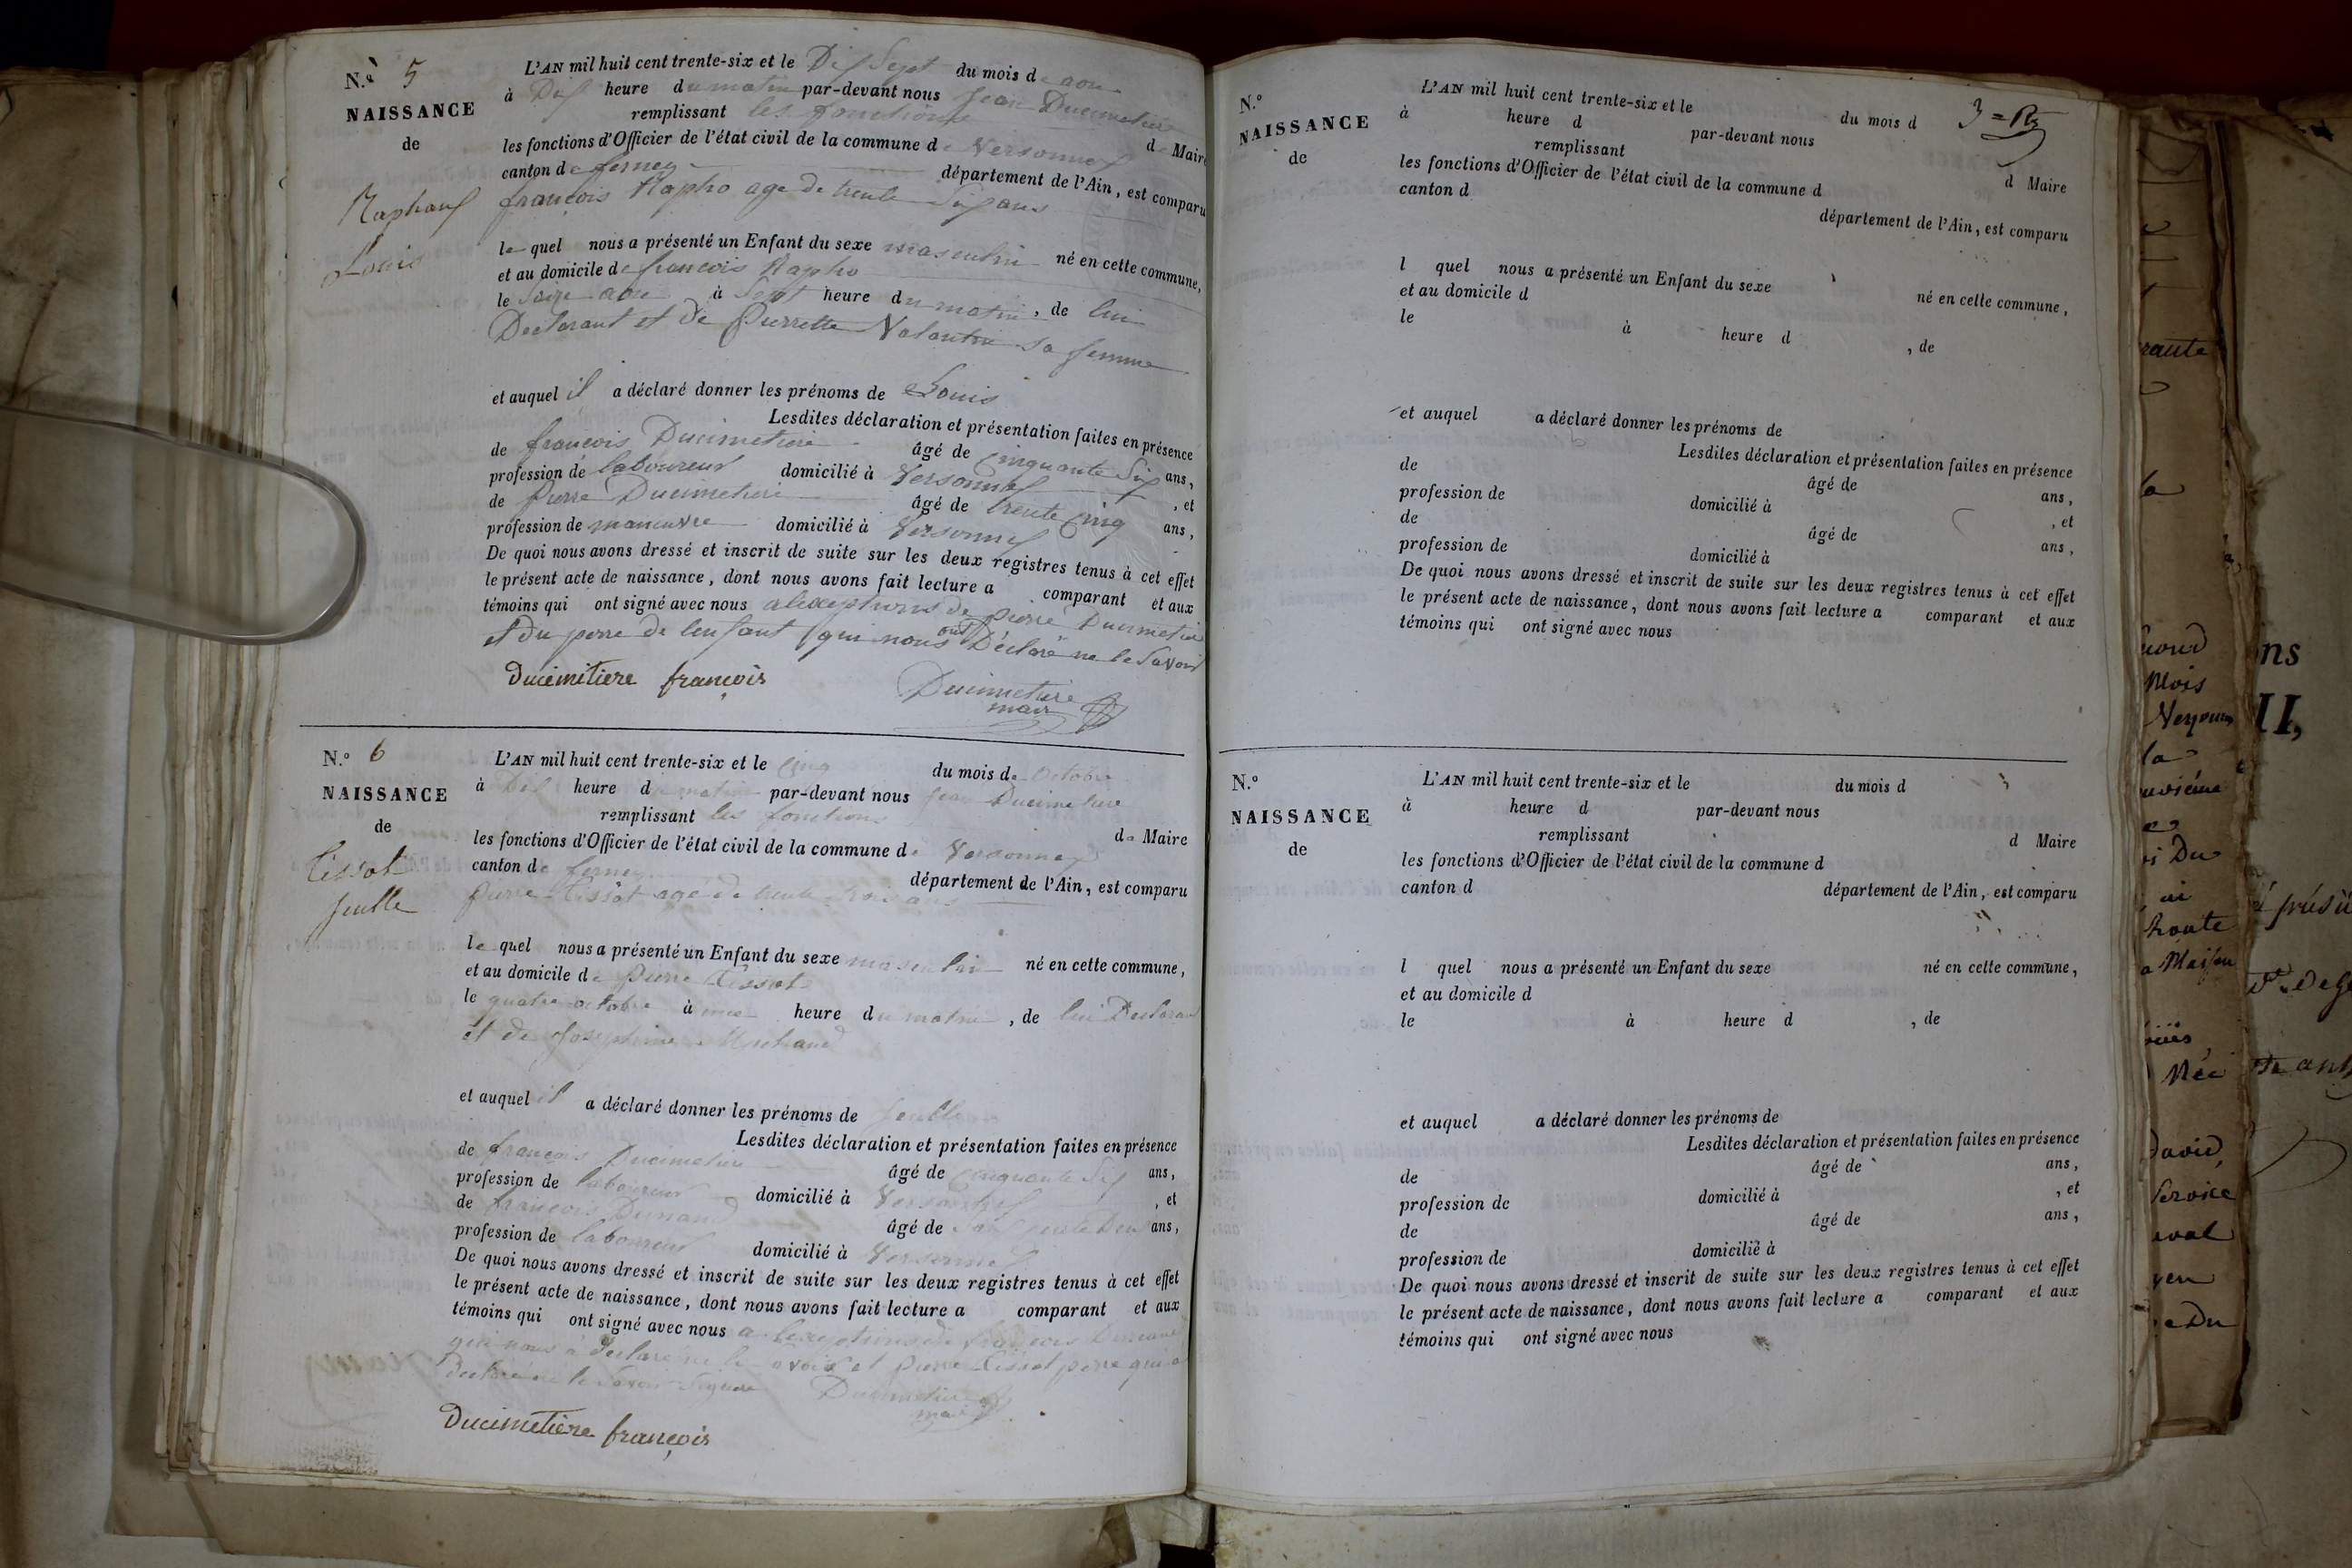 N.º 5
NAISSANCE
de
Raphauf
Louis
L'AN mil huit cent trente-six et le Dix Sept du mois de aou
à Dix heure du matin par-devant nous Jean Ducimetiere
remplissant les fonctions d Maire
les fonctions d'Officier de l'état civil de la commune de Versonnex
canton de ferney département de l'Ain, est comparu
françois Rapho age de trente Six ans
le quel nous a présenté un Enfant du sexe masculin né en cette commune,
et au domicile de francois Rapho
le Seize aou à Sept heure du matin, de lui
Declarant et de Pierrette Valantin sa femme
et auquel il a déclaré donner les prénoms de Louis
Lesdites déclaration et présentation faites en présence
de françois Ducimetiere âgé de cinquante Six ans,
profession de laboureur domicilié à Versonnex , et
de pierre Ducimetiere âgé de trente cinq ans,
profession de maneuvre domicilié à Versonnex
De quoi nous avons dressé et inscrit de suite sur les deux registres tenus à cet effet
le présent acte de naissance, dont nous avons fait lecture a comparant et aux
témoins qui ont signé avec nous a lexeptions de pierre Ducimetiere
et du perre de lenfant qui nous ont Déclaré ne le Savoir
Ducimitiere françois
Ducimetiere
maire
N.º 6
NAISSANCE
de
Tissot
L'AN mil huit cent trente-six et le cinq du mois de Octobre
à Dix heure du matin par-devant nous jean Ducimetiere
remplissant les fonctions
d Maire
les fonctions d'Officier de l'état civil de la commune de Versonnex
canton de ferney département de l'Ain, est comparu
pierre Tissot age de trente trois ans
le quel nous a présenté un Enfant du sexe masculin né en cette commune,
et au domicile de pierre Tissot
le quatre octobre à heure du matin, de lui Declarant
et de Josephine
et auquel il a déclaré donner les prénoms de
Lesdites déclaration et présentation faites en présence
de françois Ducimetiere âgé de cinquante Six ans,
profession de laboureur domicilié à Versonnex , et
de francois Durand âgé de ans,
profession de laboureur domicilié à Versonnex
De quoi nous avons dressé et inscrit de suite sur les deux registres tenus à cet effet
le présent acte de naissance, dont nous avons fait lecture a comparant et aux
témoins qui ont signé avec nous a lexeptions de francois Durand
qui nous à déclaré ne le Savoir et pierre Tissot perre qui a
declaré ne le Savoir Ducimetiere
maire
Ducimetiere françois
N.º
NAISSANCE
de
L'AN mil huit cent trente-six et le du mois d
à heure d par-devant nous
remplissant d Maire
les fonctions d'Officier de l'état civil de la commune d
canton d département de l'Ain, est comparu
l quel nous a présenté un Enfant du sexe né en cette commune,
et au domicile d
le à heure d , de
et auquel a déclaré donner les prénoms de
Lesdites déclaration et présentation faites en présence
de âgé de ans,
profession de domicilié à , et
de âgé de ans,
profession de domicilié à
De quoi nous avons dressé et inscrit de suite sur les deux registres tenus à cet effet
le présent acte de naissance, dont nous avons fait lecture a comparant et aux
témoins qui ont signé avec nous
N.º
NAISSANCE
de
L'AN mil huit cent trente-six et le du mois d
à heure d par-devant nous
remplissant d Maire
les fonctions d'Officier de l'état civil de la commune d
canton d département de l'Ain, est comparu
l quel nous a présenté un Enfant du sexe né en cette commune,
et au domicile d
le à heure d , de
et auquel a déclaré donner les prénoms de
Lesdites déclaration et présentation faites en présence
de âgé de ans,
profession de domicilié à , et
de âgé de ans,
profession de domicilié à
De quoi nous avons dressé et inscrit de suite sur les deux registres tenus à cet effet
le présent acte de naissance, dont nous avons fait lecture a comparant et aux
témoins qui ont signé avec nous